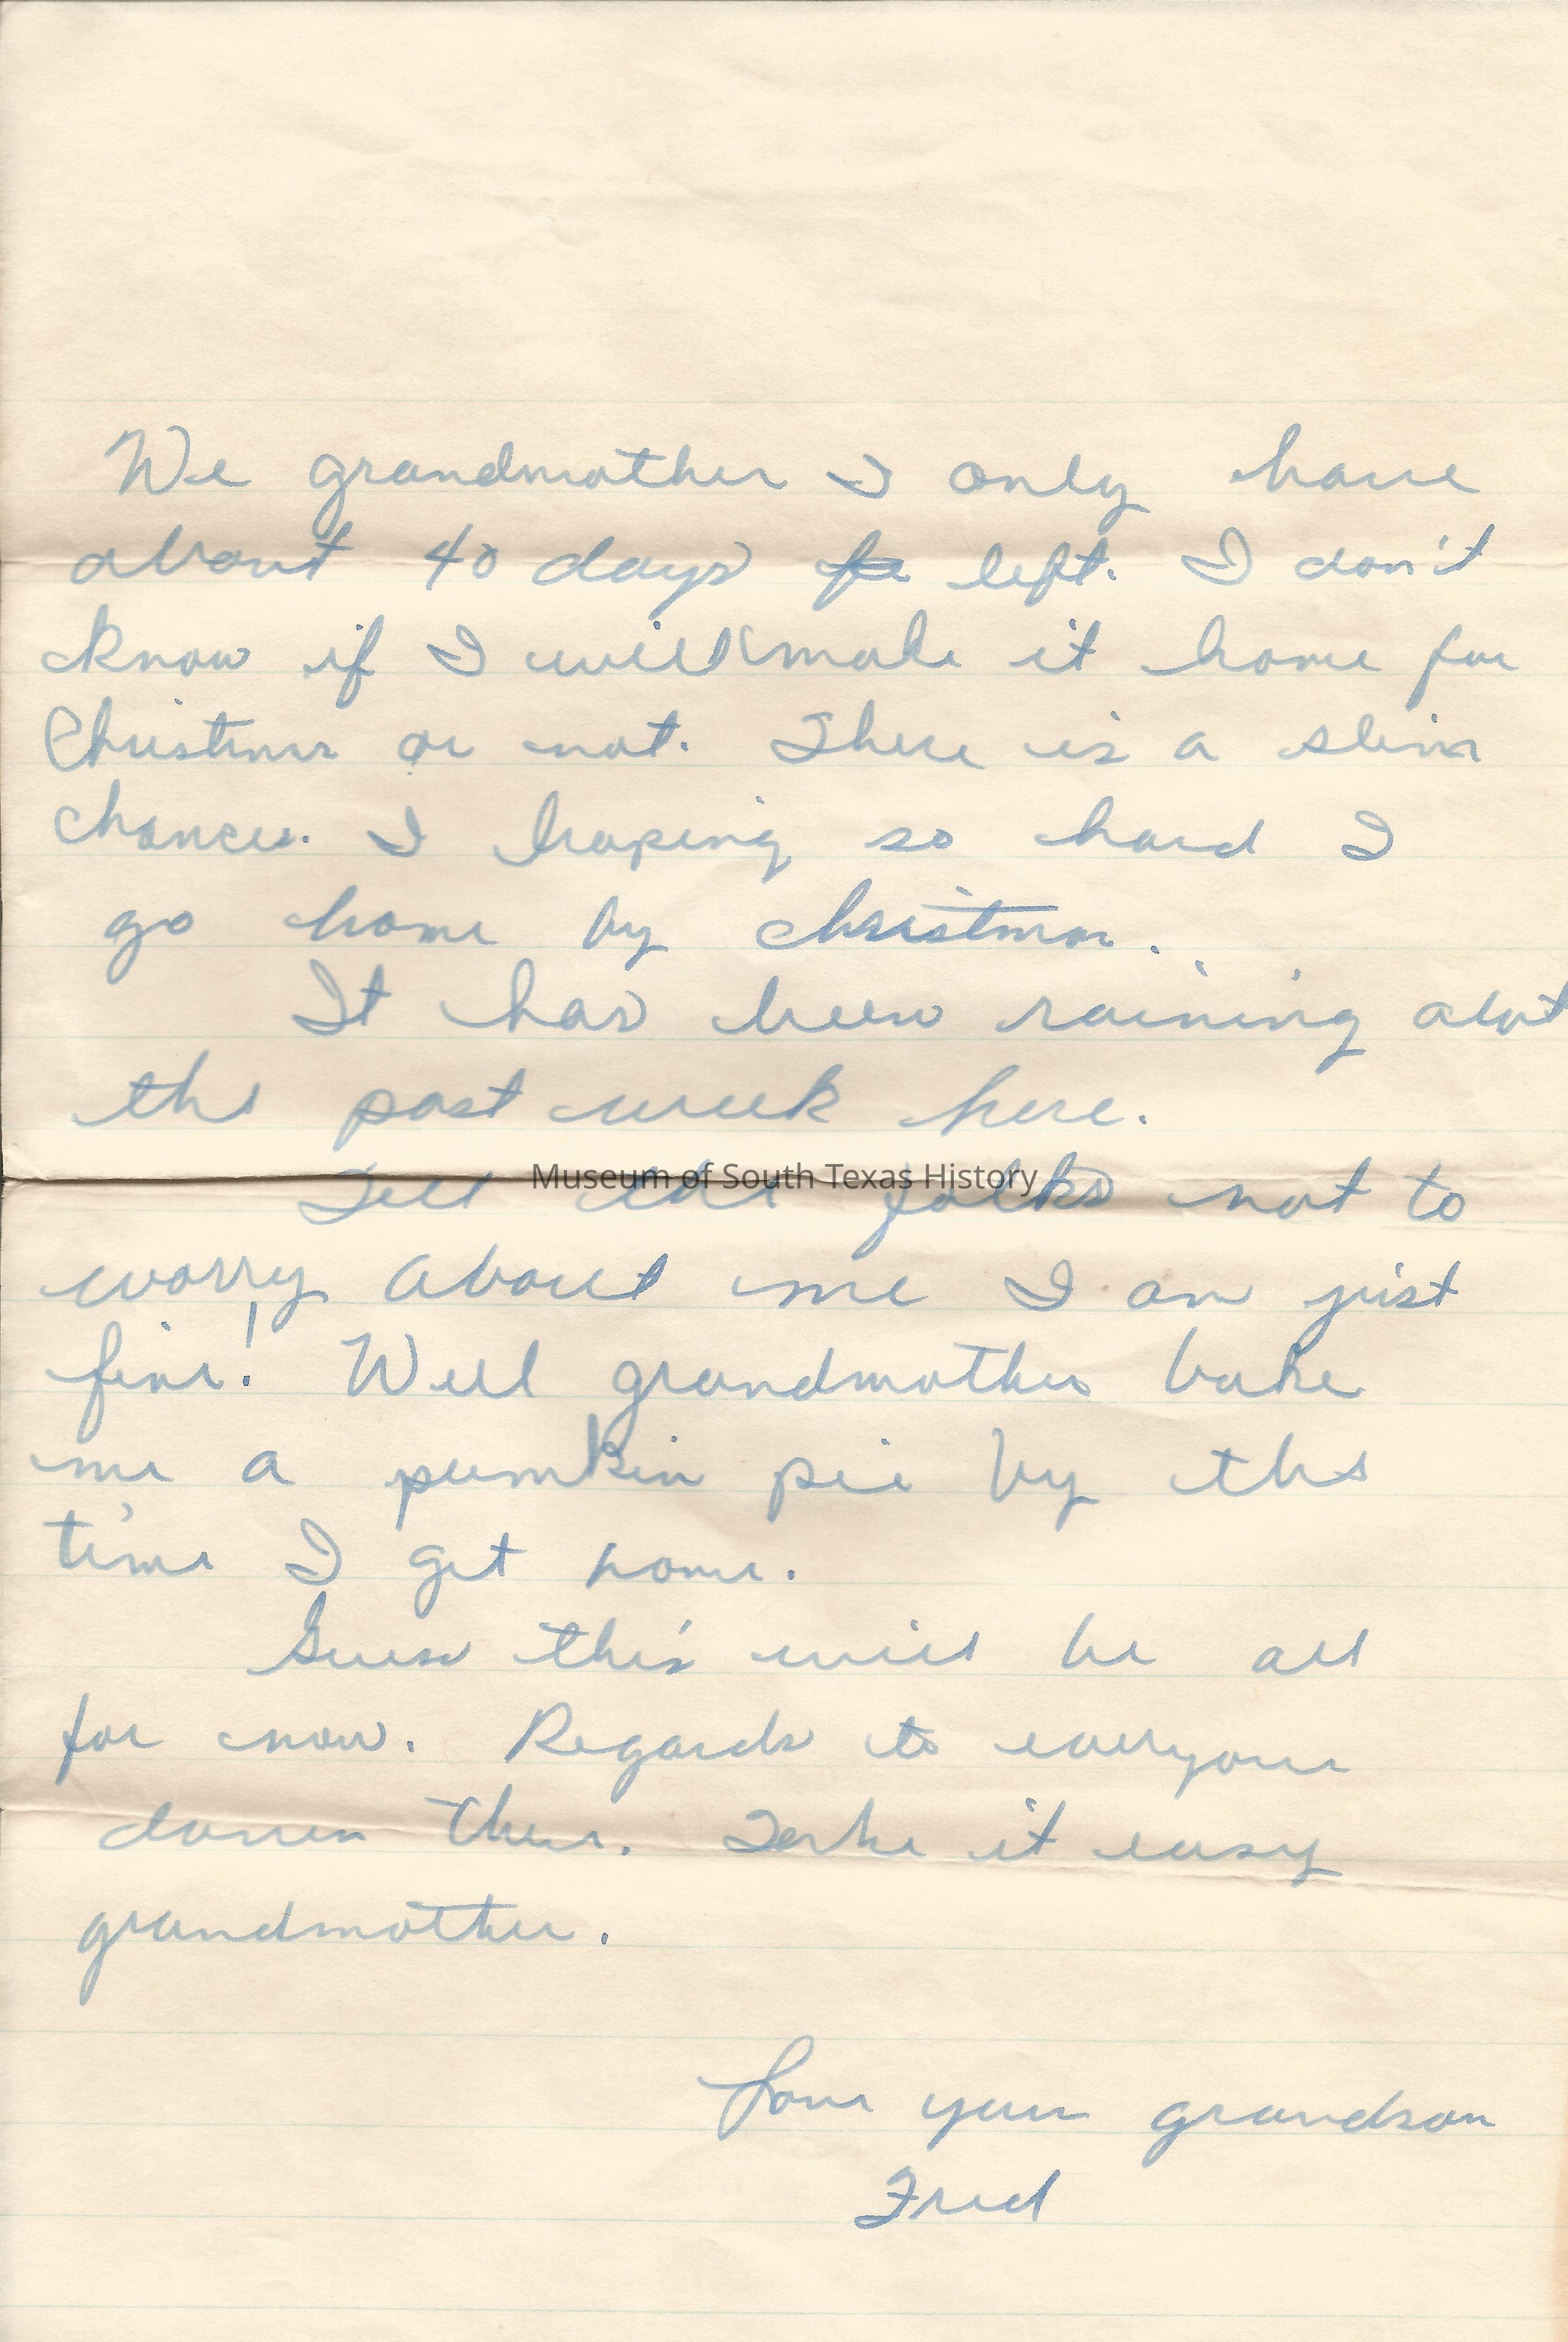 We grandmother I only have
about 40 days left. I don't
know if I will make it home for
Christmas or not. There is a slim
chance. I hoping so hard I
go home by christmas.
It has been raining alot
the past week here.
Museum of South Texas History
Tell the folks not to
worry about me I am just
fine! Well grandmother bake
me a pumkin pie by the
time I get home.
Guess this will be all
for now. Regards to everyone
down there. Take it easy
grandmother.
Love your grandson
Fred